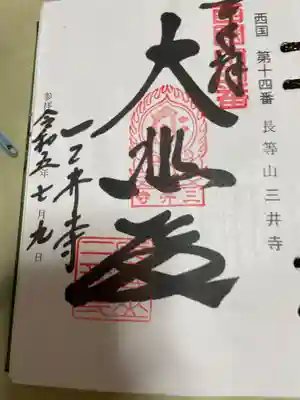 西国 第十四番 長等山 三井寺
奉拝
大悲殿
三井寺
三井寺
令和五年七月九日